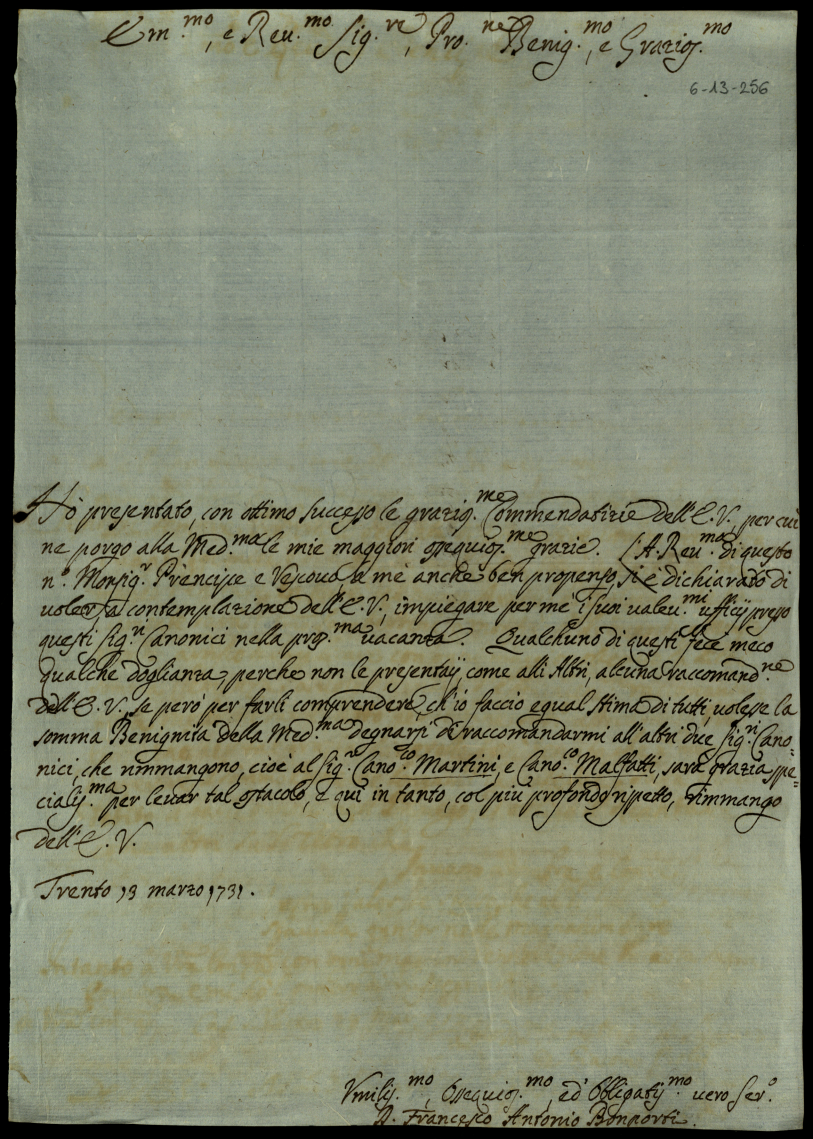 Em.mo, e Reu.mo Sig.re, Pro.ne Benig.mo, e Grazios.mo
6-13-256
Hò presentato, con ottimo successo le grazios.me Commendatizie dell'E.V., per cui
ne porgo alla Med.ma le mie maggiori ossequios.me grazie. S.A.Reu.ma di questo
n.o Monsig.r Prencipe e Vescouo, a mè anche ben propenso, si è dichiarato di
uoler, a contemplazione dell'E.V., impiegare per me i suoi ualeu.mi ufficij presso
questi Sig.ri Canonici nella pros.ma uacanza. Qualchuno di questi fece meco
qualche doglianza, perche non le presentaij come alli Altri, alcuna raccomand.ne
dell'E.V., se però per farli comprendere, ch'io faccio egual stima di tutti, uolesse la
somma Benignità della Med.ma degnarsi di raccomandarmi all'altri due Sig.ri Cano=
nici, che rimmangono, cioè al Sig.r Cano.co Martini, e Cano.co Malfatti, sarà grazia spe=
cialis.ma per leuar tal ostacolo, e qui in tanto, col più profondo rispetto, rimmango
dell'E.V.
Trento 13 marzo 1731.
Vmilis.mo, Ossequios.mo, ed Obbligatis.mo uero Ser.o
Francesco Antonio Bonporti.